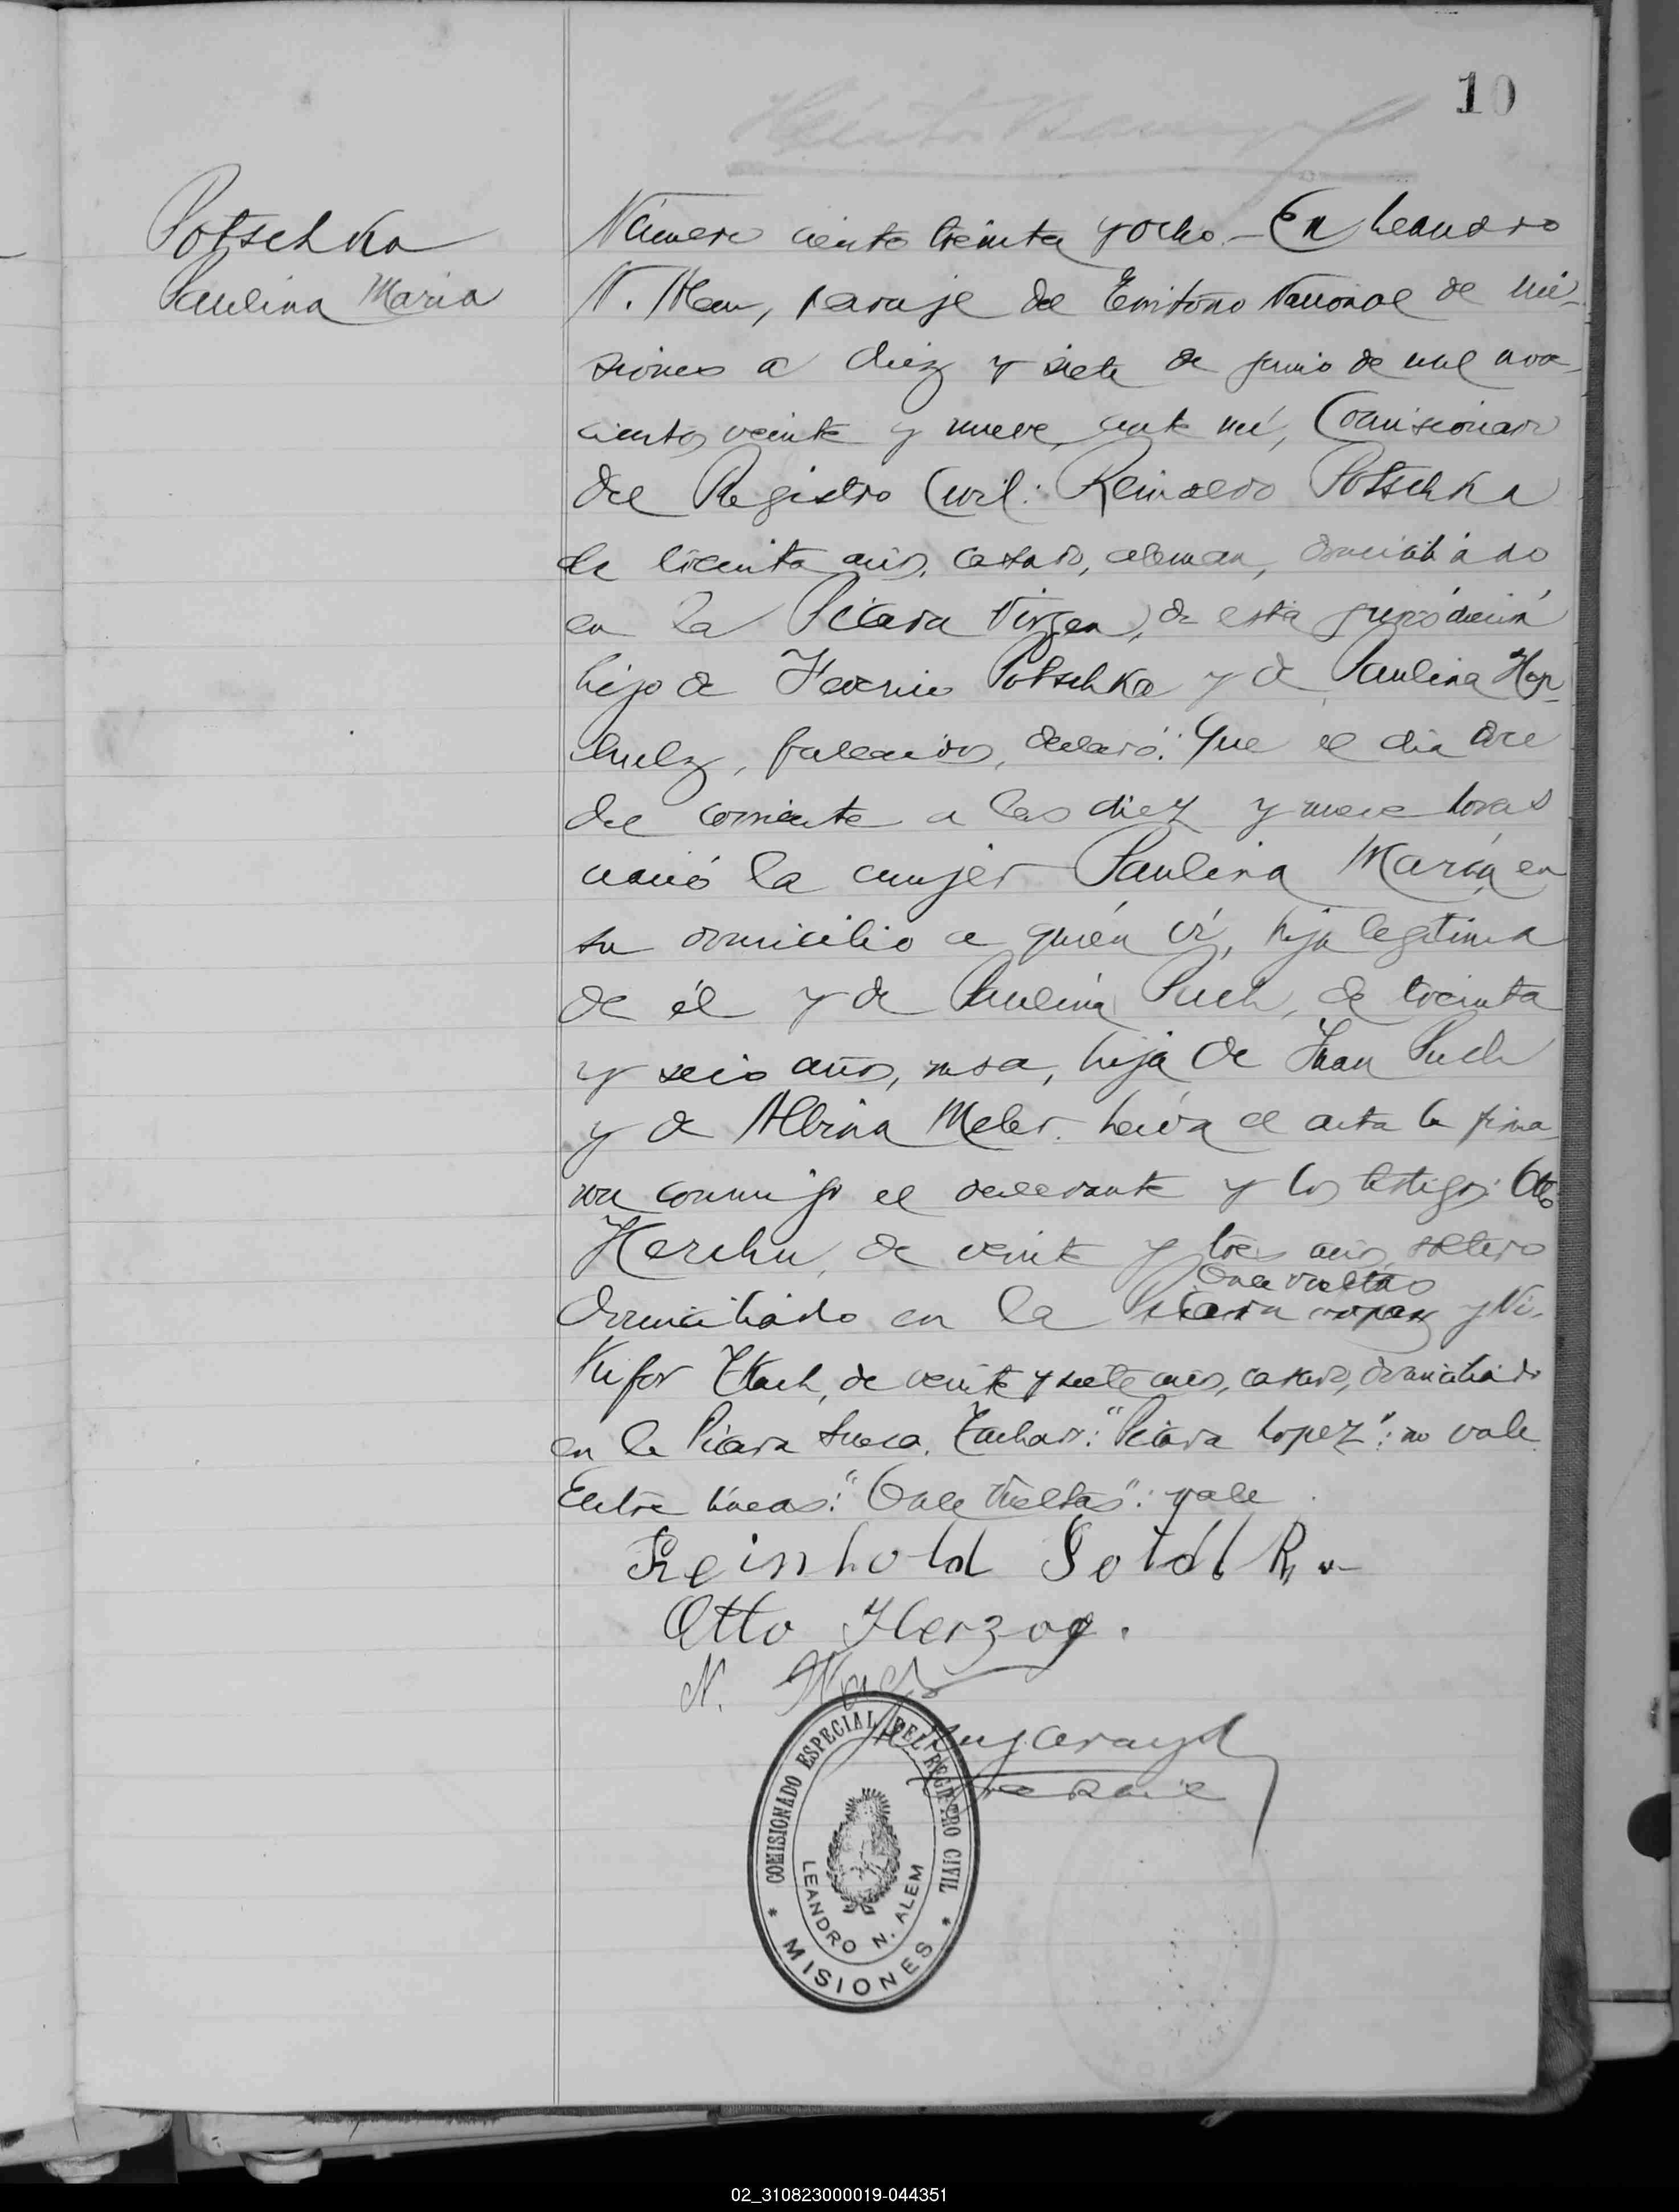 10
Potschka
Paulina Maria
Número ciento treinta y ocho.- En Leandro
N. Alem, paraje del Territorio Nacional de Mi-
siones a diez y siete de junio de mil nove-
cientos veinte y nueve, ante mí, Comisionado
del Registro Civil: Reinaldo Potschka
de treinta años, casado, aleman, domiciliado
en la Picada Virgen, de esta jurisdicción
hijo de Potschka y de Paulina
fallecidos, declaró: Que el dia doce
del corriente a las diez y nueve horas
nació la mujer Paulina María, en
su domicilio a quién ví, hija legitima
de él y de Paulina Puch, de treinta
y seis años, rusa, hija de Juan Puch
y de Albina Meler. Leída el acta la firma-
ron conmigo el declarante y los testigos: Otto
de veinte y tres años, soltero
Once vueltas
domiciliado en la Picada Lopez y Ni-
kifor de veinte y siete años, casado, domiciliado
en la Picada Sueca. Tachado: "Picada Lopez": no vale
Entre líneas: "Once Vueltas": vale
Reinhold
Otto Herzog.
N.
COMISIONADO ESPECIAL DEL REGISTRO CIVIL
LEANDRO N. ALEM
* MISIONES *
02_310823000019-044351